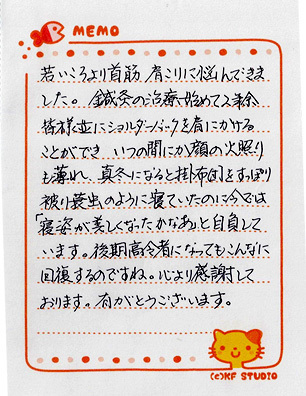 MEMO
若いころより首筋 肩こりに悩んできま
した。鍼灸の治療始めて2年余
皆様並にショルダーバックを肩にかける
ことができ いつの間にか顔の火照り
も薄れ、真冬になると掛布団をすっぽり
被り蓑虫のように寝ていたのに今では
「寝姿が美しくなったかなあ」と自負して
います。後期高令者になってもこんなに
回復するのですね。心より感謝して
おります。有がとうございます。
(c)KF STUDIO